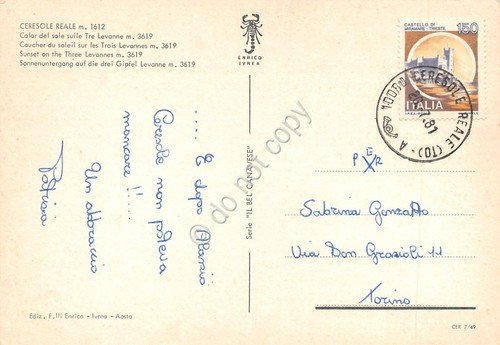 CERESOLE REALE m. 1612
Calar del sole sulle Tre Levanne m. 3619
Coucher du soleil sur les Trois Levannes m. 3619
Sunset on the Three Levannes m. 3619
Sonnenuntergang auf die drei Gipfel Levanne m. 3619
ENRICO
IVREA
CASTELLO DI
MIRAMARE - TRIESTE
150
ITALIA
10080 CERESOLE REALE (TO) - A
81
..... E dopo Alassio
Ceresole non poteva
mancare !!....
Un abbraccio
Patrizia
Serie "IL BEL CANAVESE"
Sabrina
Via Don Grazioli 11
Torino
Ediz. F.lli Enrico - Ivrea - Aosta
CER 7/49
do not copy